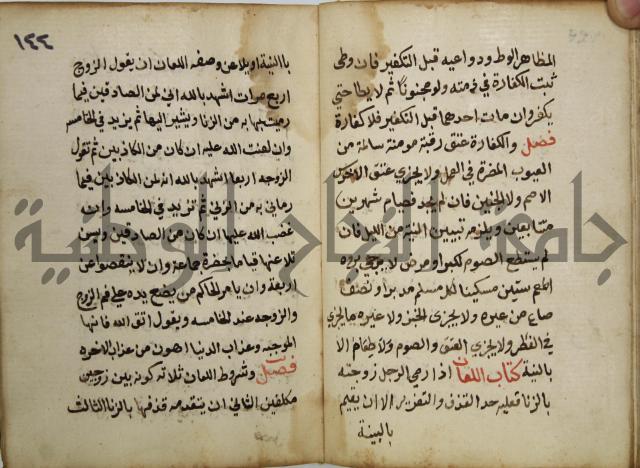 المظاهر الوطؤ ودواعيه قبل التكفير فان وطئ
ثبت الكفارة في ذمته ولو مجنونا ثم لا يطا حتي
يكفر وان مات احدهما قبل التكفير فلا كفارة
فصل والكفارة عتق رقبة مومنة سالمة من
العيوب المضرة في العمل ولا يجزي عتق الاخرس
الاصم ولا الجنين فان لم يجد فصيام شهرين
متتابعين ويلزمه تبييت النية من الليل فان
لم يستطع الصوم لكبر او مرض لا يرجي برءه
اطعم ستين مسكينا لكل مسلم مد بر او نصف
صاع من غيره ولا يجزي الخبز ولا غيره مما يجزي
في الفطر ولا يجزي العتق والصوم والاطعام الا
بالنية كتاب اللعان اذا رمي الرجل زوجته
بالزنا فعليه حد القذف والتعزير الا ان يقيم
بالبينة
١٤٤
باالبينة او يلاعن وصفة اللعان ان يقول الزوج
اربع مرات اشهد بالله اني لمن الصادقين فيما
رميتها به من الزنا ويشير اليها ثم يزيد في الخامسه
وان لعنت الله عليه ان كان من الكاذبين ثم تقول
الزوجه اربعا اشهد بالله انه لمن الكاذبين فيما
رماني به من الزني ثم تزيد في الخامسه وان
غضب الله عليها ان كان من الصادقين ويسن
تلاعنها قياما بحضرة جماعة وان لا ينقصوا عن
اربعة وان يامر الحاكم من يضع يده علي فم الزوج
والزوجه عند الخامسه ويقول اتق الله فانها
الموجبه وعذاب الدنيا اهون من عذاب الاخره
فصل وشروط اللعان ثلاثه كونه بين زوجين
مكلفين الثاني ان يتقدمه قذفها بالزنا الثالث
جامعة النجاح الوطنية